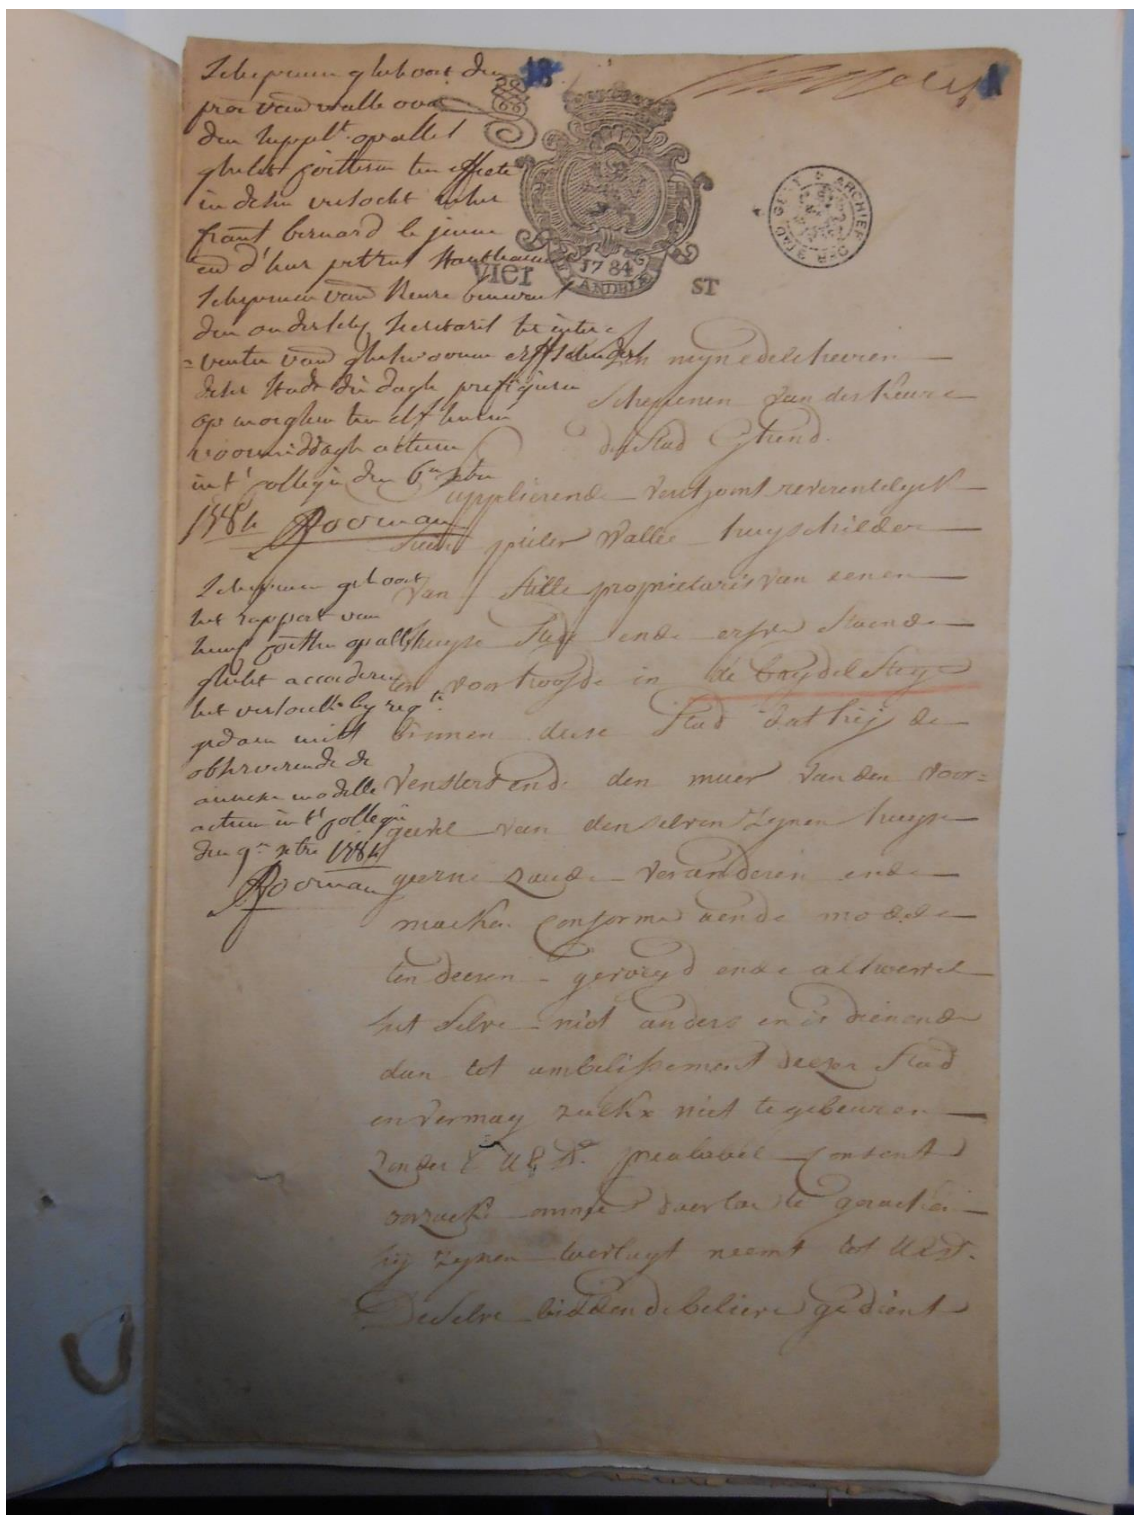 18
Schepenen ghehoort den
procr vande walle over
den supplt. op alles
ghelet committeren ten effecte
in desen versocht d'heer
frans bernard le jeune
en d'heer
schepenen van der keure benevens
den onderschreven secretaris ter inter-
ventie van ghesworenen erfscheeders
deser stadt die dagh prefigeren
op morghen ten elf heuren
voormiddagh actum
in't collegie den 6en
1784 Rooman
Schepenen gehoort
het rapport van
heus committen op alles
ghelet accorderen
het versoeck by reqte.
gedaen mits
observerende de
annexe modelle
actum in't collegie
den 9en xbre 1784
Rooman
1784
VLANDRIE
VIER ST
ARCHIEF DER STAD GENT
Aen myn edele heeren
Schepenen van der keure
der Stad Ghend.
Supplierende vertoont reverentelyck
pieter Wallee huyschilder
van stille proprietaris van eenen
huyse stede ende erfve staende
ten voorhoofde in de breydel stege
binnen dese stad dat hij de
vensters ende den muer van den voor=
gevel van den selven zynen huyse
geerne zaude veranderen ende
maeken conforme aende modele
ten deesen gevoegd ende alhoewel
het selve niet anders en is dienende
dan tot ambelissement deezer stad
en vermag zulkx niet te gebeuren
zonder prealabel consent
oorzaeke omme daer toe te geraeken
hij zynen toevlugt neemt tot UEdt.
De selve biddende believe gedient